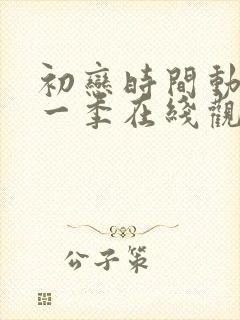 初戀時間動
一季在綫觀
公子策